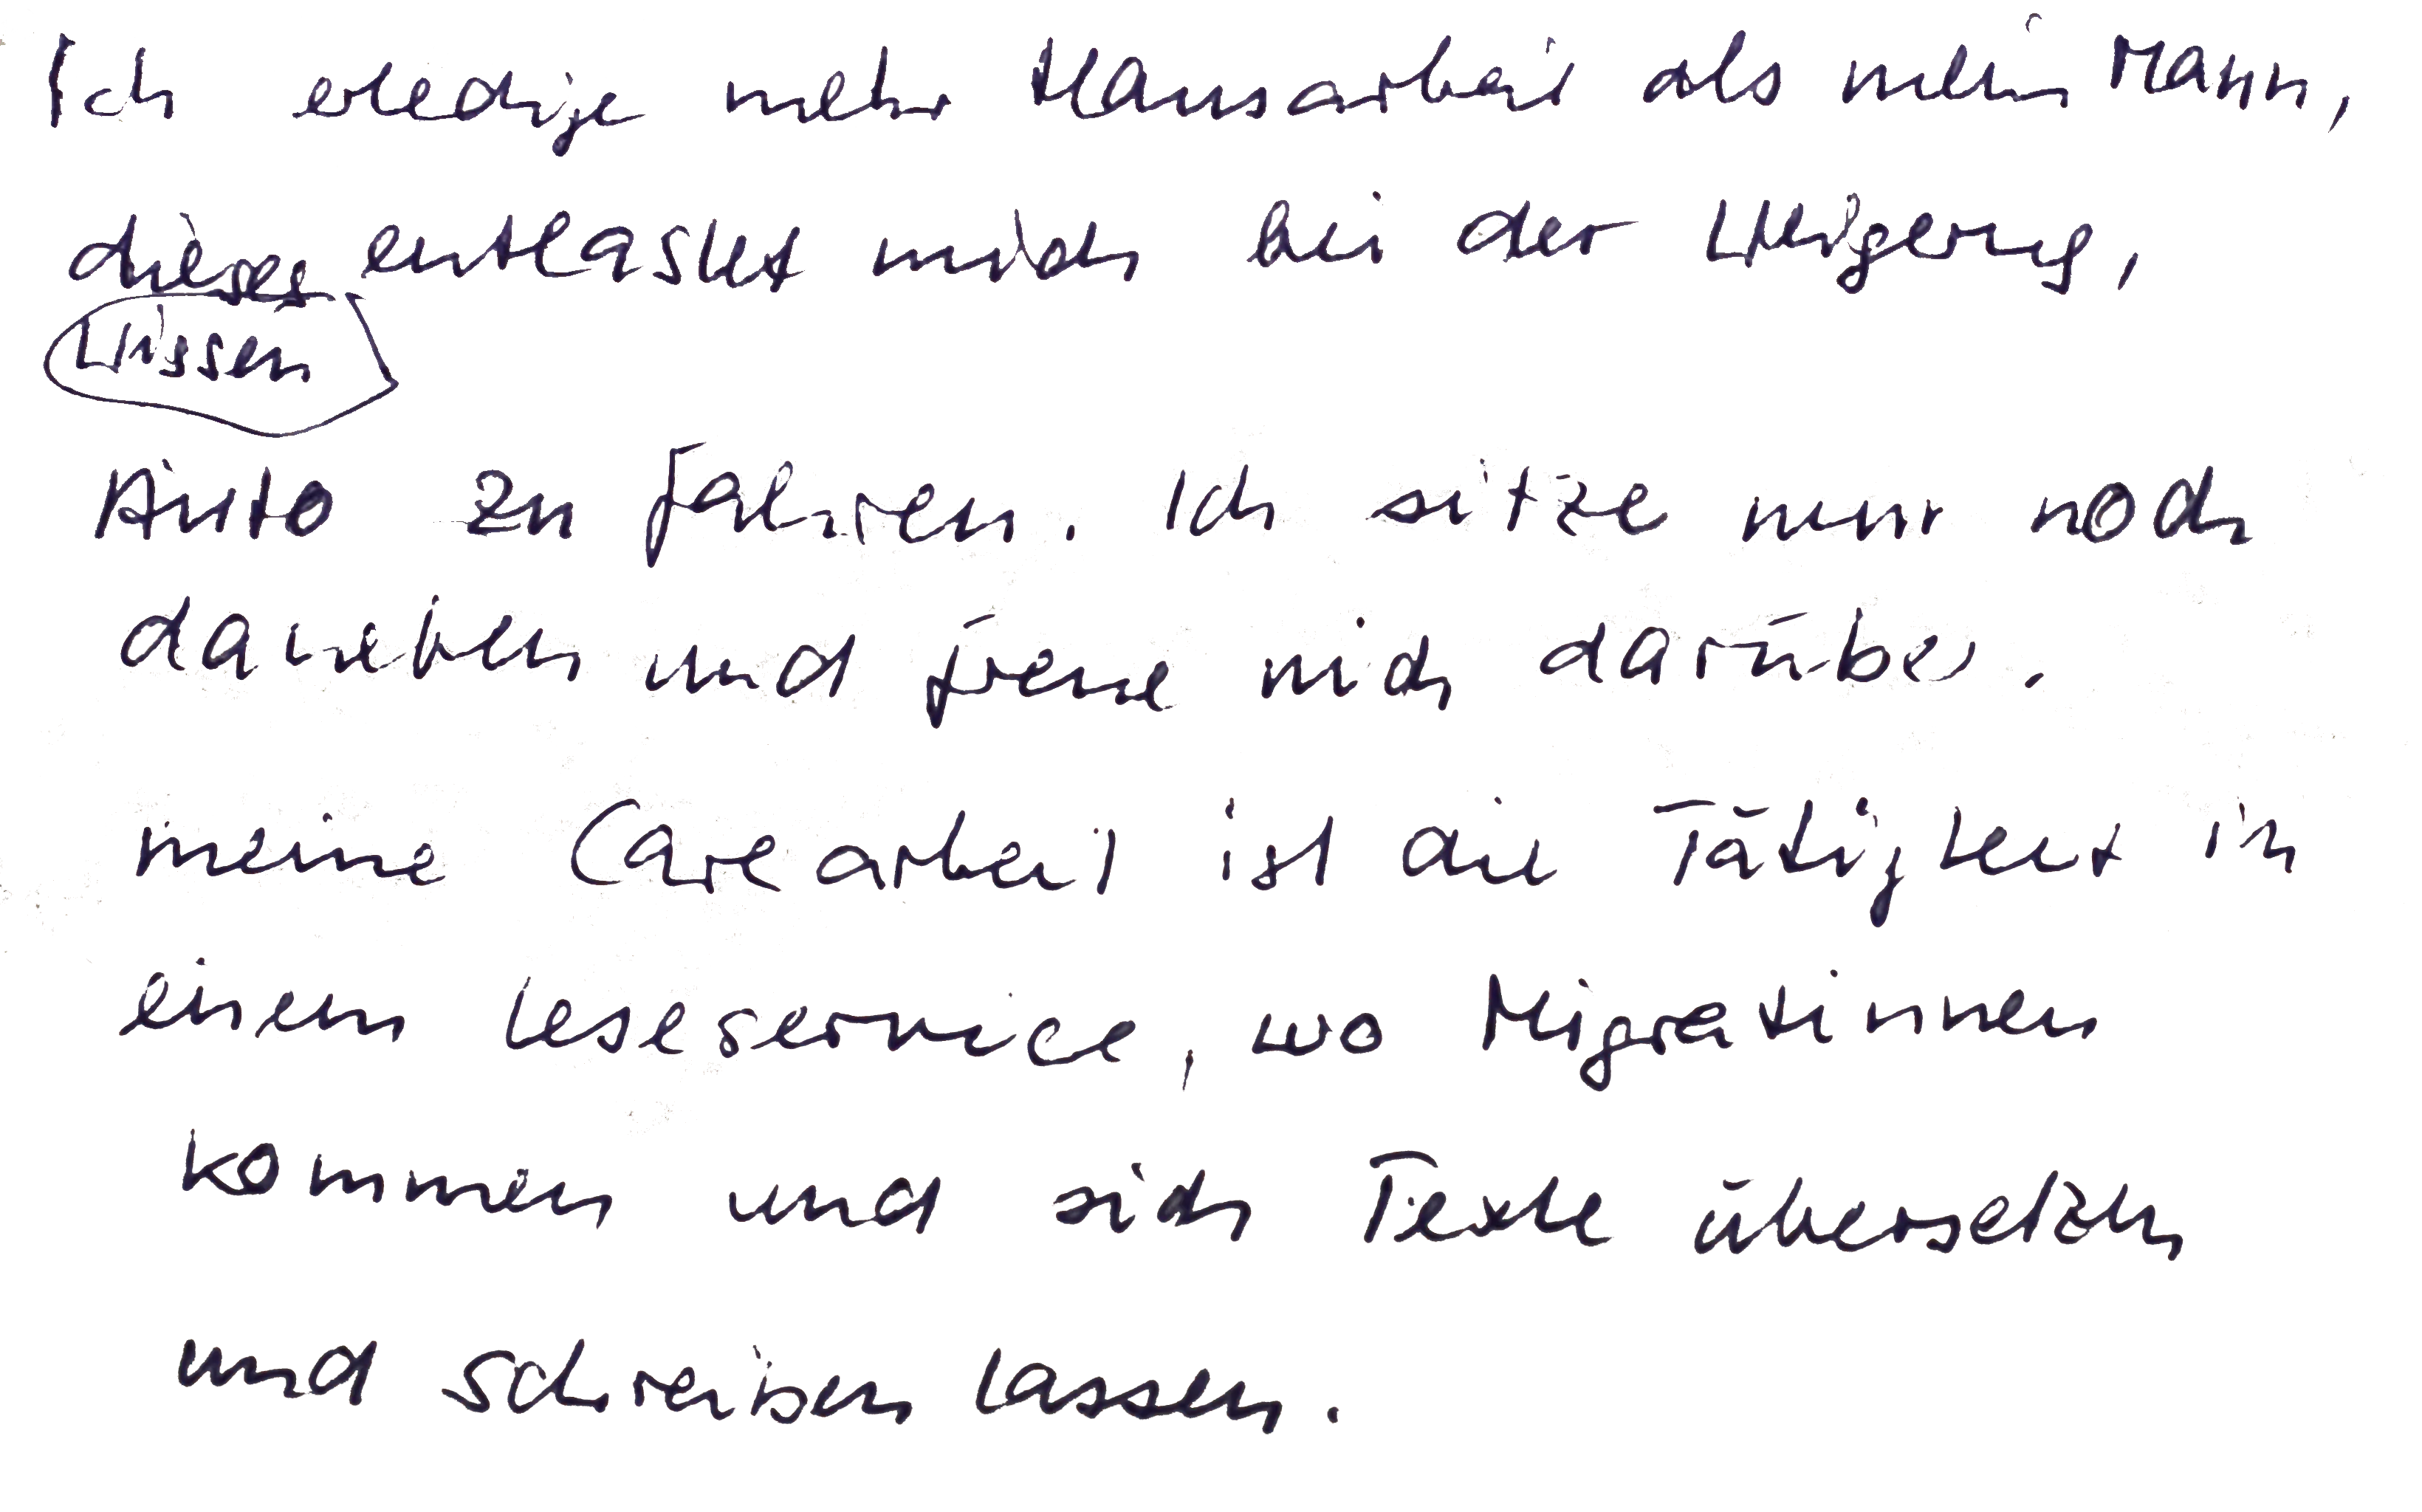 Ich erledige mehr Hausarbeit als mein Mann,
dieses entlastet mich bei der Weigerung,
Wissen
Auto zu fahren. Ich sitze nur noch
daneben und freue mich darüber.
meine Carearbeit ist die Tätigkeit in
einem Leseservice, wo Migrantinnen
kommen und sich Texte übersetzen
und schreiben lassen.